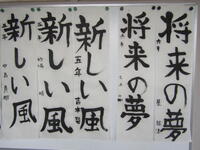 将来の夢
将来の夢
新しい風
五年
新しい風
新しい風